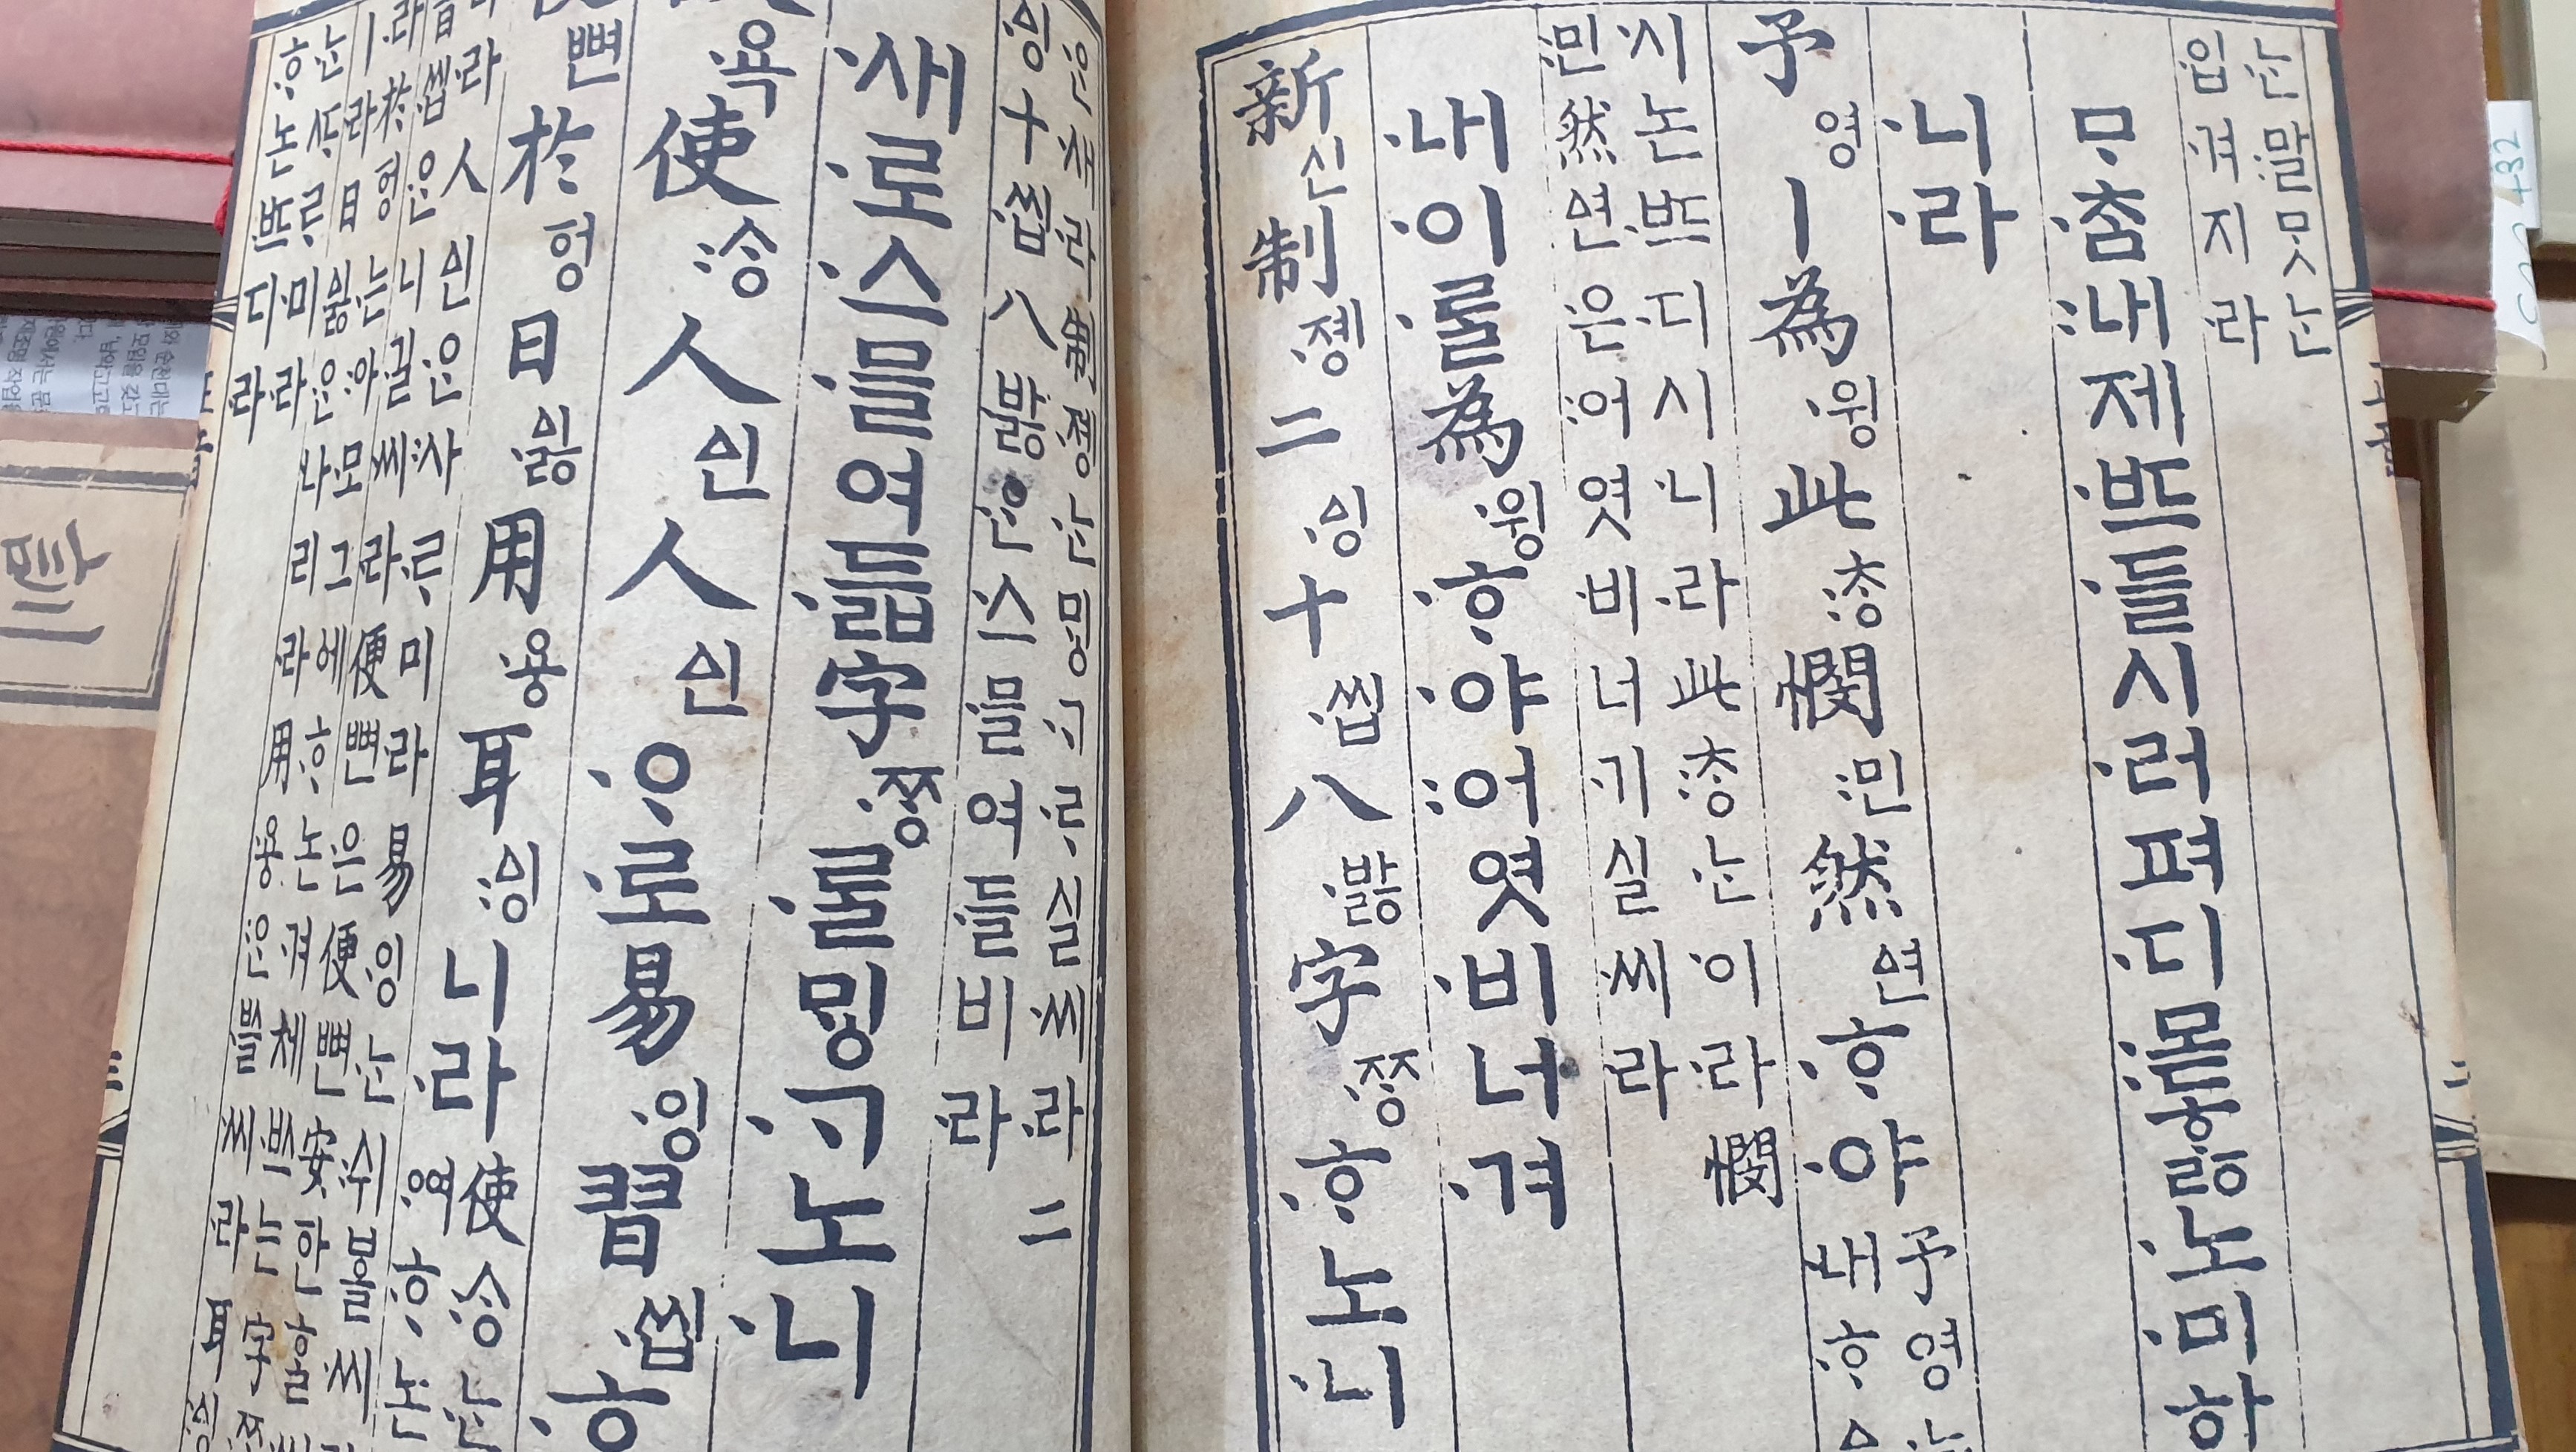 ᄂᆞᆫ말ᄆᆞᆺᄂᆞᆫ
입겨지라
ᄆᆞᄎᆞᆷ내제ᄠᅳ들시러펴디몯ᄒᆞᇙ노미하
니라
予영ㅣ爲윙此ᄎᆞᆼ憫민然ᅀᅧᆫᄒᆞ야
予영ᄂᆞᆫ
내ᄒᆞ
시논ᄠᅳ디시니라此ᄎᆞᆼᄂᆞᆫ이라憫
민然ᅀᅧᆫ은어엿비너기실씨라
내이ᄅᆞᆯ爲윙ᄒᆞ야어엿비너겨
新신制졩二ᅀᅵᆼ十씹八바ᇙ字ᄍᆞᆼᄒᆞ노니
ᄋᆞᆫ새라制졩ᄂᆞᆫᄆᆡᇰᄀᆞᄅᆞ실씨라二
ᅀᅵᆼ十씹八바ᇙᄋᆞᆫ스믈여들비라
새로스믈여듧字ᄍᆞᆼᄅᆞᆯᄆᆡᇰᄀᆞ노니
욕使ᄉᆞᆼ人ᅀᅵᆫ人ᅀᅵᆫᄋᆞ로易잉習씹ᄒᆞ
뼌於ᅙᅥᆼ日ᅀᅵᇙ用용耳ᅀᅵᆼ니라
使ᄉᆞᆼᄂᆞᆫ
ᄒᆡᅇᅧᄒᆞ논
라人ᅀᅵᆫᄋᆞᆫ사ᄅᆞ미라易잉ᄂᆞᆫ쉬ᄫᅳᆯ씨
라習씹ᄋᆞᆫ니길씨라便뼌은便뼌安한ᄒᆞᆯ씨
라於ᅙᅥᆼ는아모그ᅌᅦᄒᆞ논겨체ᄡᅳ는字ᄍᆞᆼ
ㅣ라日ᅀᅵᇙᄋᆞᆫ나리라用용ᄋᆞᆫᄡᅳᆯ씨라耳ᅀᅵᆼ
ᄒᆞ논ᄠᅳ디라
訓